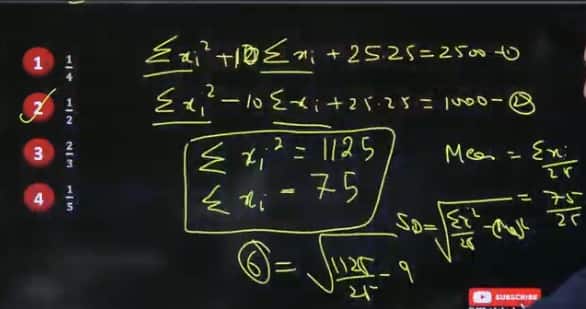 1 1/4
2 1/2
3 2/3
4 1/5
Σxi² + 10 Σxi + 25.25 = 2500 - ①
Σxi² - 10 Σxi + 25.25 = 1000 - ②
Σxi² = 1125
Σxi = 75
Mean = Σxi/25
= 75/25
SD = √Σxi²/25 - (Mean)²
⑥ = √1125/25 - 9
SUBSCRIBE